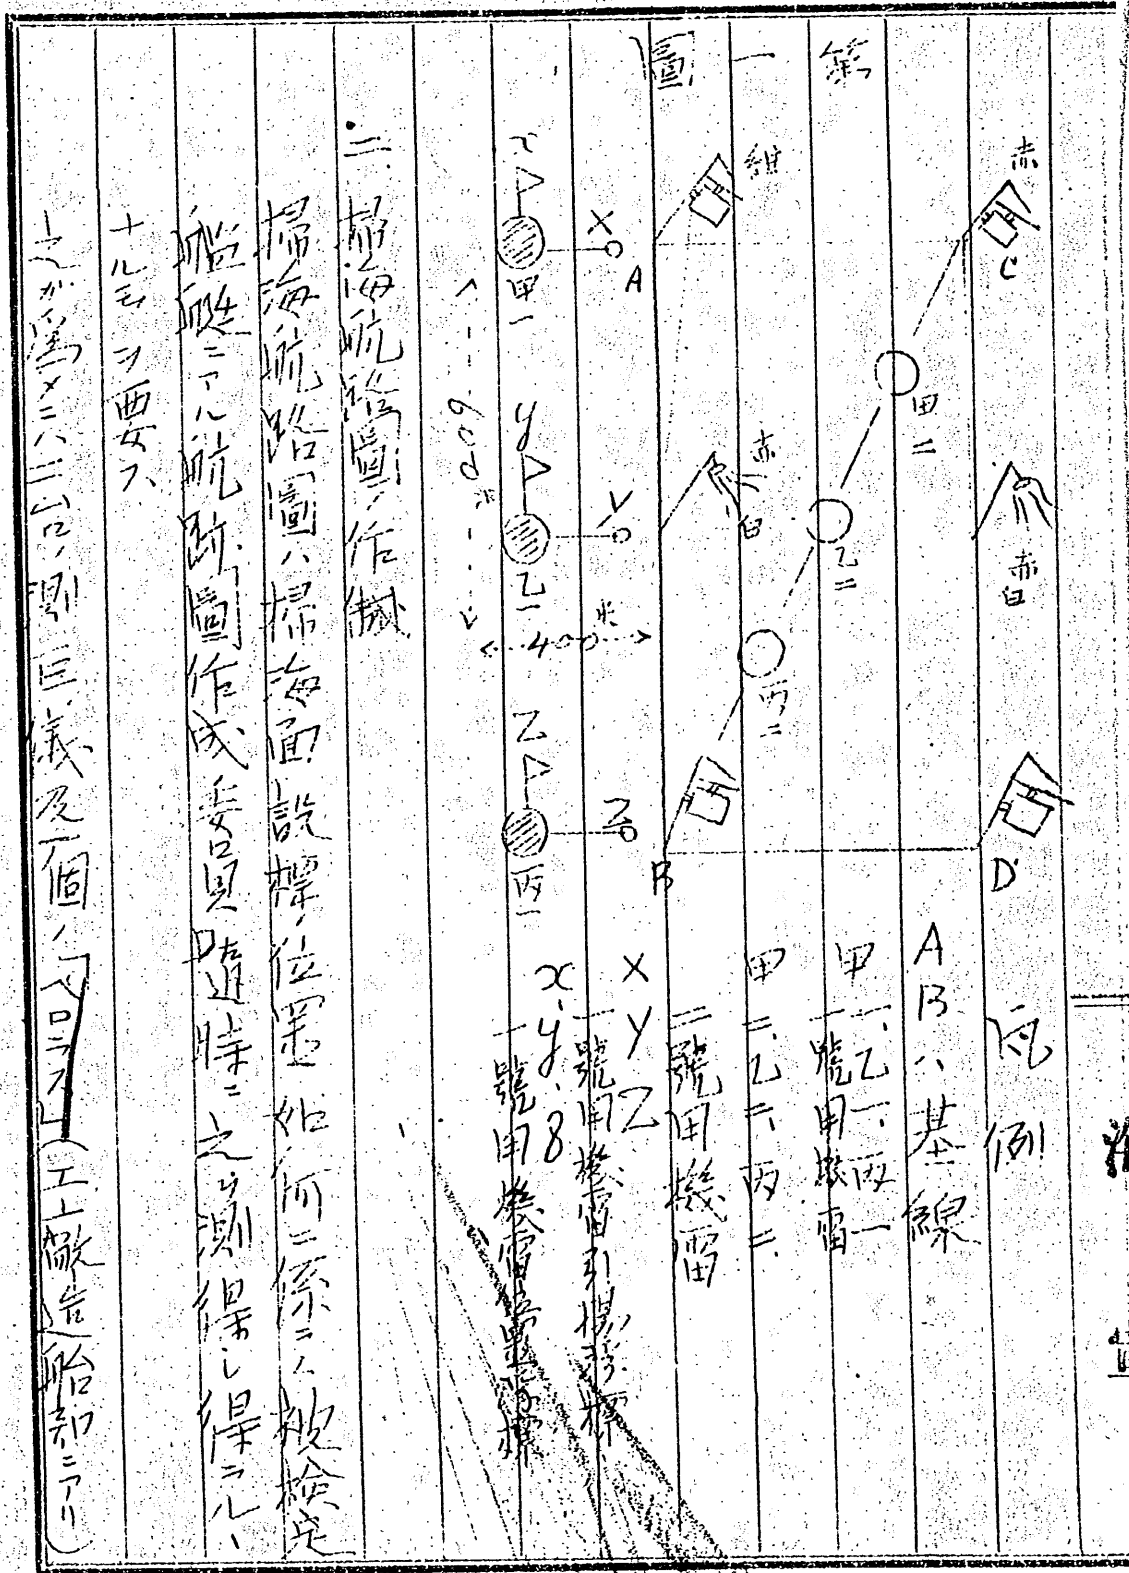 第一圖
赤
C
赤白
D
甲二
乙二
丙二
紺
A
赤白
B
X
Y
Z
x
甲一
y
乙一
z
丙一
600米
400米
凡例
ABハ基線
甲一、乙一、丙一
一號用機雷
甲二、乙二、丙二、
二號用機雷
X Y Z
一號用機雷引揚浮標
x、y、z
一號用機雷位置浮標
二、掃海航路圖ノ作製
掃海航路圖ハ掃海面設標ノ位置如何ニ係ニハ被檢定
艦艇ニアル航跡圖作成委員隨時ニ之ヲ測得シ得ラルヽ
ナルモヲ要ス、
之ガ爲メニハ三台ノ測巨儀及一個ノ「ペロラス」(工廠造船部ニアリ)